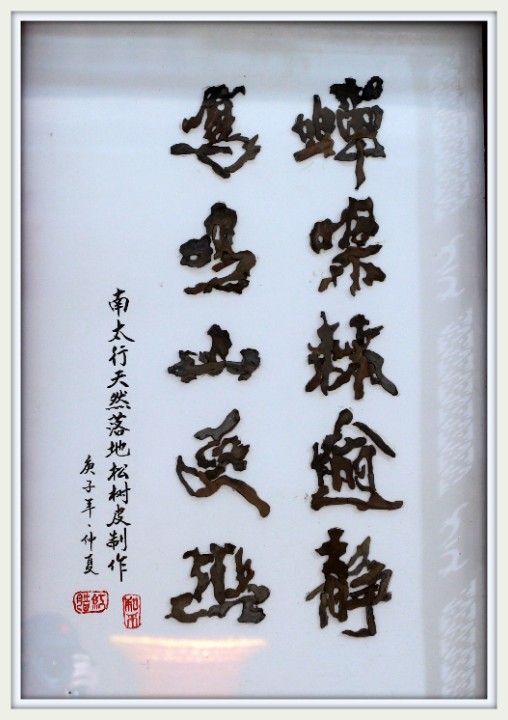 蟬噪林逾静
鳥鳴山更幽
南太行天然落地松树皮制作
庚子年、仲夏